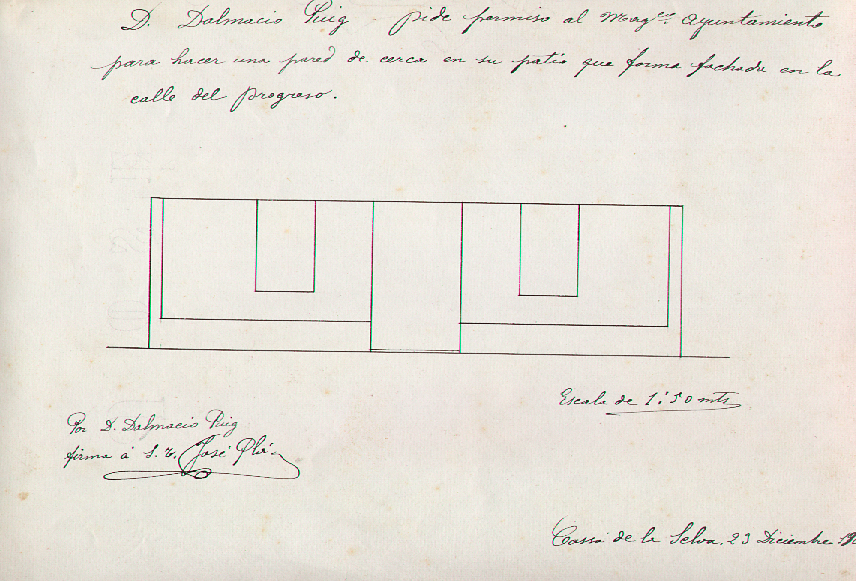 D. Dalmacio Puig pide permiso al Magco. Ayuntamiento
para hacer una pared de cerca en su patio que forma fachada en la
calle del Progreso.
Escala de 1:50 mts
Por D. Dalmacio Puig
firma á S. R. José Plá
Cassá de la Selva, 23 Diciembre